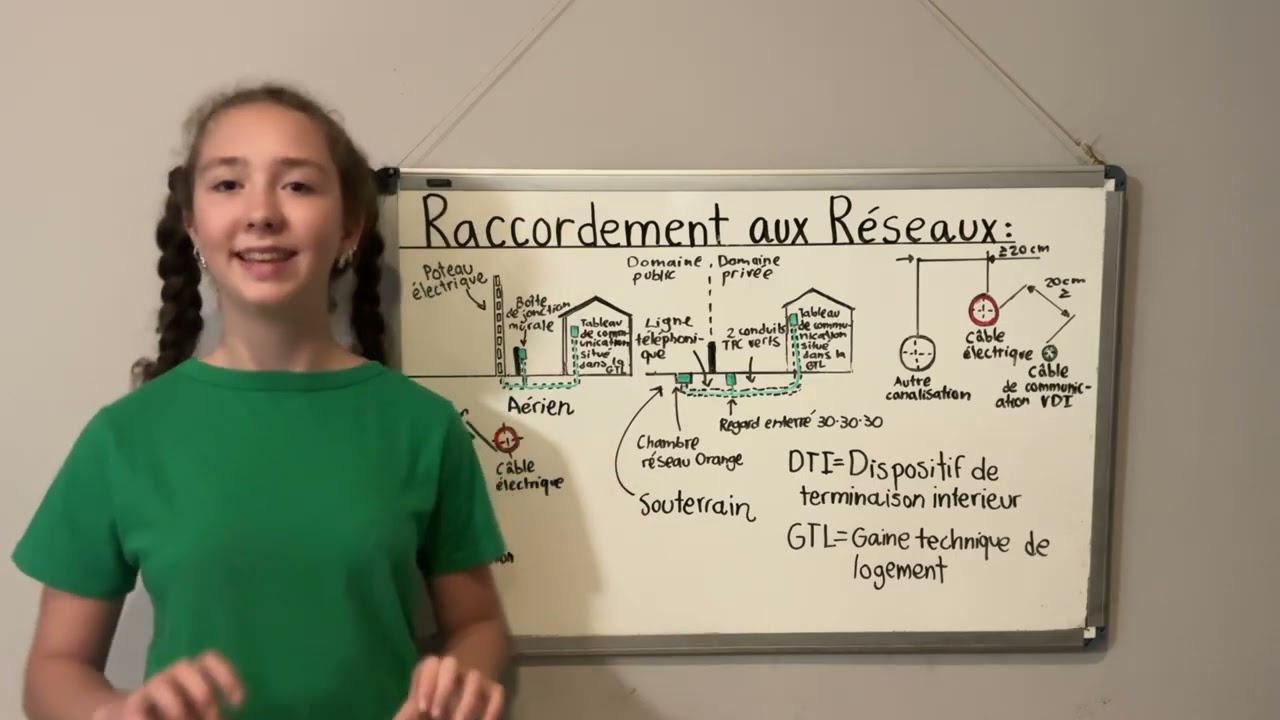 Raccordement aux Réseaux:
Poteau
électrique
Boîte
de jonction
murale
Tableau
de comm-
unication
situé
dans la
GTL
Aérien
Câble
électrique
Domaine
public
Domaine
privée
Ligne
téléphoni-
que
2 conduits
TPC verts
Tableau
de commu-
nication
situé
dans la
GTL
Regard enterré 30-30-30
Chambre
réseau Orange
Souterrain
≥20cm
20cm
≥
Câble
électrique
Autre
canalisation
Câble
de communic-
ation VDI
DTI=Dispositif de
terminaison interieur
GTL=Gaine technique de
logement